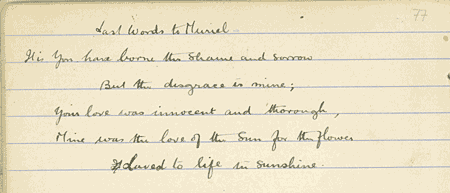 77
Last Words to Muriel
'Tis You have borne the Shame and sorrow
But the disgrace is mine;
Your love was innocent and thorough,
Mine was the love of the Sun for the flower
I loved to life in sunshine.